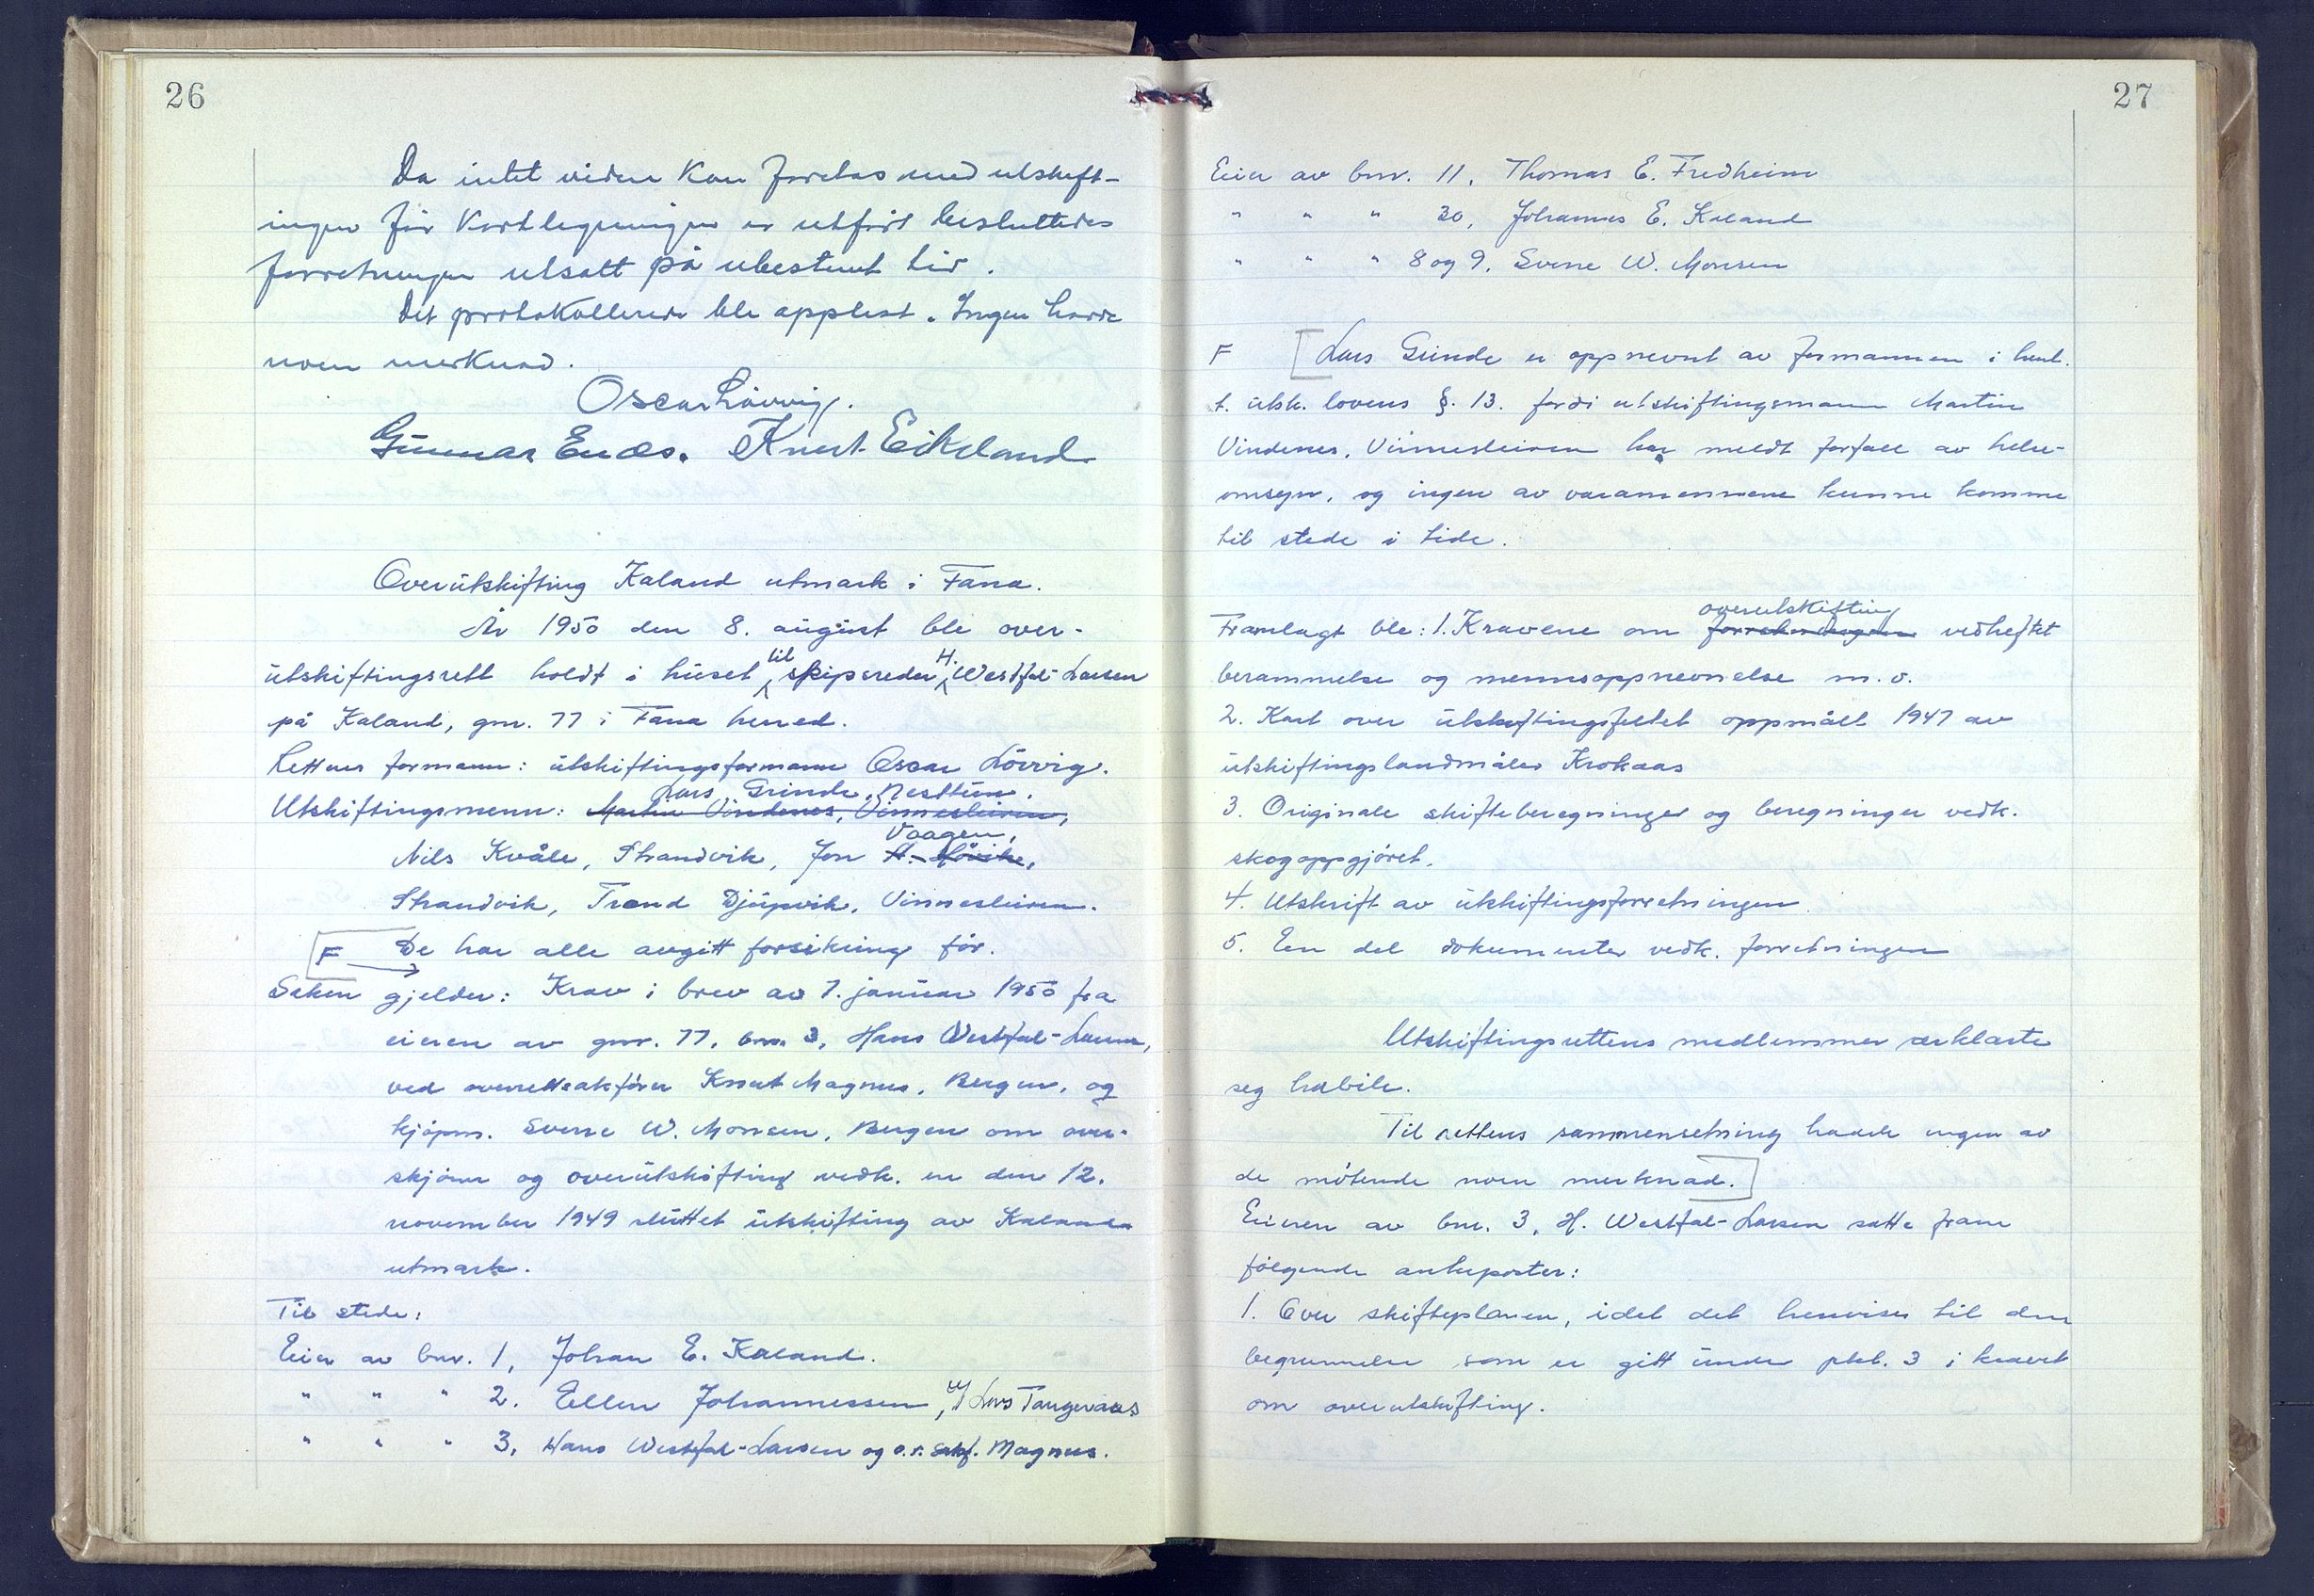 26
Da intet videre kan foretas med utskift-
ingen før kartlegningen er utført besluttedes
forretningen utsatt på ubestemt tid.
Det protokollerede ble opplest. Ingen hadde
noen merknad.
Oscar Løvvig.
Gunnar Enes. Knut Eikeland
Overutskifting Kaland utmark i Fana.
År 1950 den 8. august ble over-
utskiftingsrett holdt i huset til skipsreder H. Westfal-Larsen
på Kaland, gnr. 77 i Fana herred.
Rettens formann: utskiftingsformann Oscar Lövvig.
Lars Grinde, Nesttun.
Utskiftingsmenn: Martin Vindenes, Vinnesleiren,
Vaagen,
Nils Kvåle, Strandvik, Jon H.
Strandvik, Trond Djupvik, Vinnesleiren.
F De har alle avgitt forsikring før.
Saken gjelder: Krav i brev av 7. januar 1950 fra
eieren av gnr. 77, bnr. 3, Hans Westfal-Larsen,
ved overrettsakfører Knut Magnus, Bergen, og
kjøpm. Sverre W. Monsen, Bergen om over-
skjønn og overutskifting vedk. en den 12.
november 1949 sluttet utskifting av Kalands
utmark.
Til stede:
Eier av bnr. 1, Johan E. Kaland.
" " " 2. Ellen Johannessen, v/ Lars Tangeraas
" " " 3, Hans Westfal-Larsen og o.r.sakf. Magnus.
27
Eier av bnr. 11, Thomas E. Fredheim
" " " 30, Johannes E. Kaland
" " " 8 og 9, Sverre W. Monsen
F Lars Grinde er oppnevnt av formannen i henh.
t. utsk. lovens §. 13. fordi utskiftingsmann Martin
Vindenes, Vinnesleiren har meldt forfall av helse-
omsyn, og ingen av varamennene kunne komme
til stede i tide.
overutskifting
Framlagt ble: 1. Kravene om forretningen vedheftet
berammelse og mennsoppnevnelse m.v.
2. Kart over utskiftingsfeltet oppmålt 1947 av
utskiftingslandmåler Krokaas
3. Originale skifteberegninger og beregninger vedk.
skogoppgjöret.
4. Utskrift av utskiftingsforretningen
5. En del dokumenter vedk. forretningen
Utskiftingsrettens medlemmer erklærte
seg habile.
Til rettens sammensetning hadde ingen av
de møtende noen merknad.
Eieren av bnr. 3, H. Westfal-Larsen satte fram
følgende ankeposter:
1. Over skifteplanen, idet det henvises til den
begrunnelse som er gitt under pkt. 3 i kravet
om overutskifting.